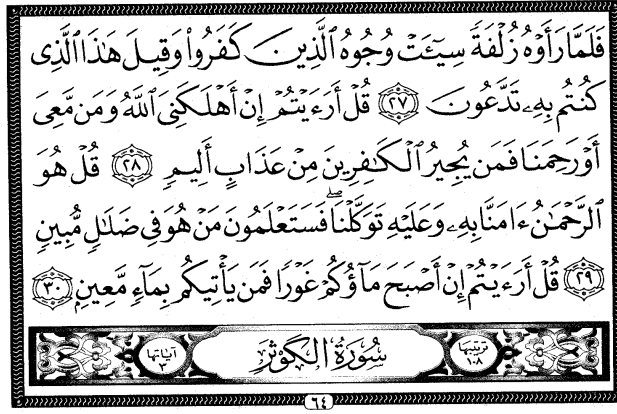 فَلَمَّا رَأَوْهُ زُلْفَةً سِيٓـَٔتْ وُجُوهُ ٱلَّذِينَ كَفَرُوا۟ وَقِيلَ هَٰذَا ٱلَّذِى
كُنتُم بِهِۦ تَدَّعُونَ ٢٧ قُلْ أَرَءَيْتُمْ إِنْ أَهْلَكَنِىَ ٱللَّهُ وَمَن مَّعِىَ
أَوْ رَحِمَنَا فَمَن يُجِيرُ ٱلْكَٰفِرِينَ مِنْ عَذَابٍ أَلِيمٍ ٢٨ قُلْ هُوَ
ٱلرَّحْمَٰنُ ءَامَنَّا بِهِۦ وَعَلَيْهِ تَوَكَّلْنَا ۖ فَسَتَعْلَمُونَ مَنْ هُوَ فِى ضَلَٰلٍ مُّبِينٍ
٢٩ قُلْ أَرَءَيْتُمْ إِنْ أَصْبَحَ مَآؤُكُمْ غَوْرًا فَمَن يَأْتِيكُم بِمَآءٍ مَّعِينٍۭ ٣٠
ترتيبها ١٠٨ سُورَةُ الكَوثَر آياتها ٣
٦٤